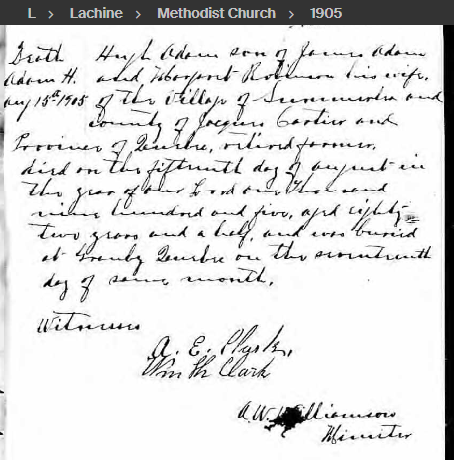 L > Lachine > Methodist Church > 1905
Death Hugh Adam son of James Adam
Adam H. and Margaret Robinson his wife,
Aug 15th 1905 of the Village of Summerlea and
County of Jacques Cartier and
Province of Quebec, retired farmer,
died on the fifteenth day of August in
the year of our Lord one thousand
nine hundred and five, aged eighty
two years and a half, and was buried
at Granby Quebec on the seventeenth
day of same month.
Witnesses
A. E.
Clark
A. W. Williamson
Minister